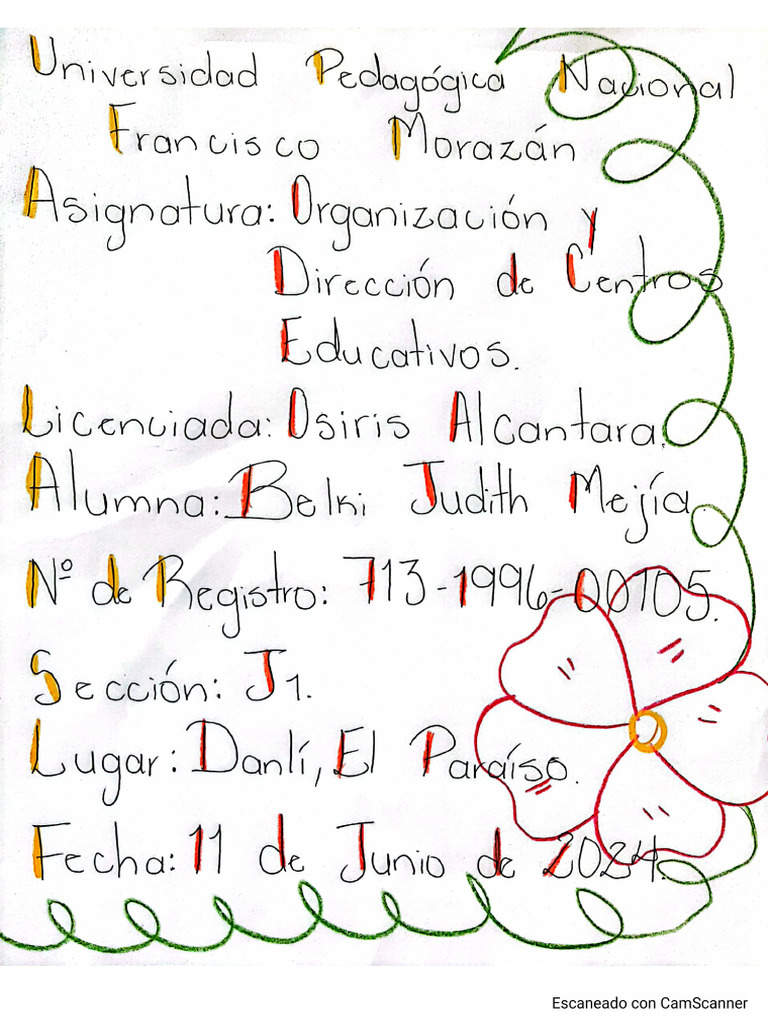 Universidad Pedagógica Nacional
Francisco Morazán
Asignatura: Organización y
Dirección de Centros
Educativos.
Licenciada: Osiris Alcantara.
Alumna: Belki Judith Mejía.
Nº de Registro: 713-1996-00105.
Sección: J1.
Lugar: Danlí, El Paraíso.
Fecha: 11 de Junio de 2024.
Escaneado con CamScanner